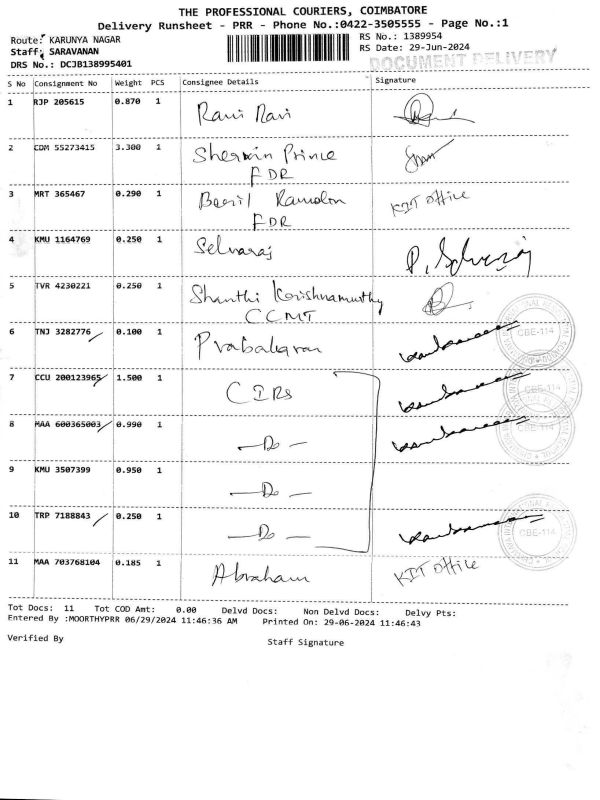 THE PROFESSIONAL COURIERS, COIMBATORE
Delivery Runsheet - PRR - Phone No.:0422-3505555 - Page No.:1
Route: KARUNYA NAGAR
RS No.: 1389954
Staff: SARAVANAN
RS Date: 29-Jun-2024
DRS No.: DCJB138995401
DOCUMENT DELIVERY
S No Consignment No Weight PCS Consignee Details Signature
1 RJP 205615 0.870 1 Ravi Ravi
2 CDM 55273415 3.300 1 Sherwin Prince
FDR
3 MRT 365467 0.290 1 KIT office
FDR
4 KMU 1164769 0.250 1 Selvaraj
5 TVR 4230221 0.250 1 Shanthi Krishnamurthy
CCMT
6 TNJ 3282776 0.100 1 Prabakaran
CBE-114
7 CCU 200123965 1.500 1 CIRs
CBE-114
8 MAA 600365003 0.990 1 — Do —
CBE-114
9 KMU 3507399 0.950 1 — Do —
10 TRP 7188843 0.250 1 — Do —
CBE-114
11 MAA 703768104 0.185 1 Abraham KIT office
Tot Docs: 11 Tot COD Amt: 0.00 Delvd Docs: Non Delvd Docs: Delvy Pts:
Entered By :MOORTHYPRR 06/29/2024 11:46:36 AM Printed On: 29-06-2024 11:46:43
Verified By
Staff Signature